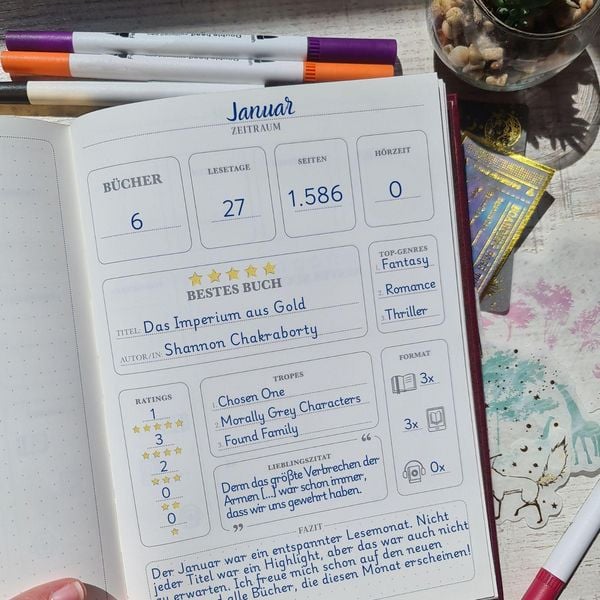 Januar
ZEITRAUM
BÜCHER
6
LESETAGE
27
SEITEN
1.586
HÖRZEIT
0
BESTES BUCH
TITEL: Das Imperium aus Gold
AUTOR/IN: Shannon Chakraborty
TOP-GENRES
1. Fantasy
2. Romance
3. Thriller
RATINGS
1
3
2
0
0
TROPES
1. Chosen One
2. Morally Grey Characters
3. Found Family
FORMAT
3x
3x
0x
LIEBLINGSZITAT
Denn das größte Verbrechen der
Armen [...] war schon immer,
dass wir uns gewehrt haben.
FAZIT
Der Januar war ein entspannter Lesemonat. Nicht
jeder Titel war ein Highlight, aber das war auch nicht
zu erwarten. Ich freue mich schon auf den neuen
und alle Bücher, die diesen Monat erscheinen!